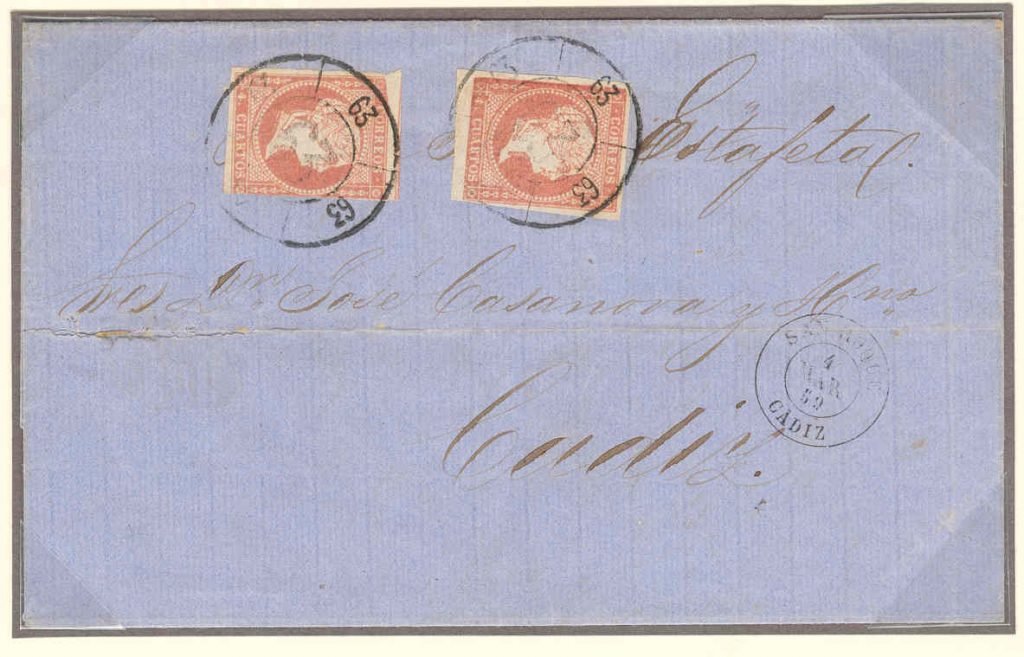 63
63
CORREOS
4 CUARTOS
63
63
CORREOS
4 CUARTOS
Estafeta
Sres Dn José Casanova y Hno
Cadiz.
SAN ROQUE
4
MAR
59
CADIZ